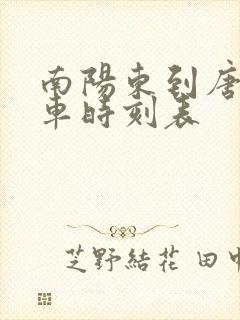 南陽東到唐
車時刻表
芝野結花 田中